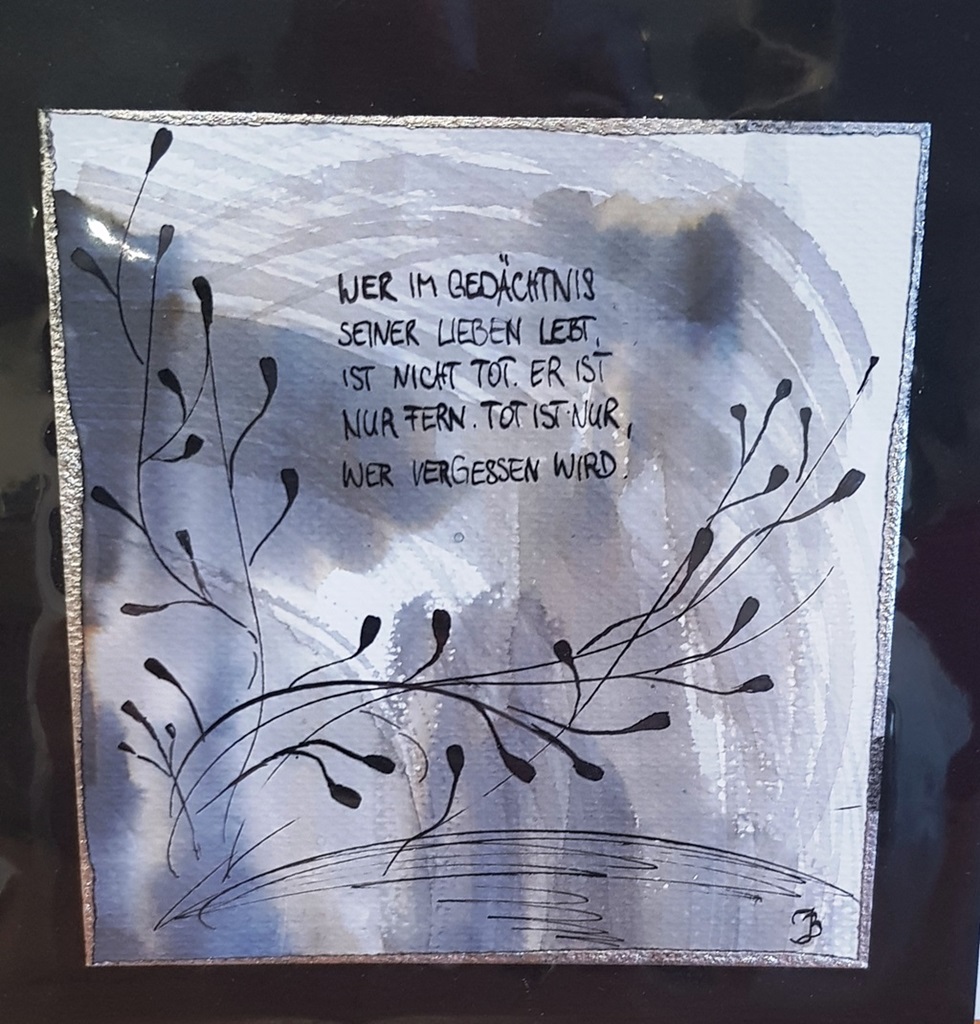 WER IM GEDÄCHTNIS
SEINER LIEBEN LEBT,
IST NICHT TOT. ER IST
NUR FERN. TOT IST NUR,
WER VERGESSEN WIRD.
JB